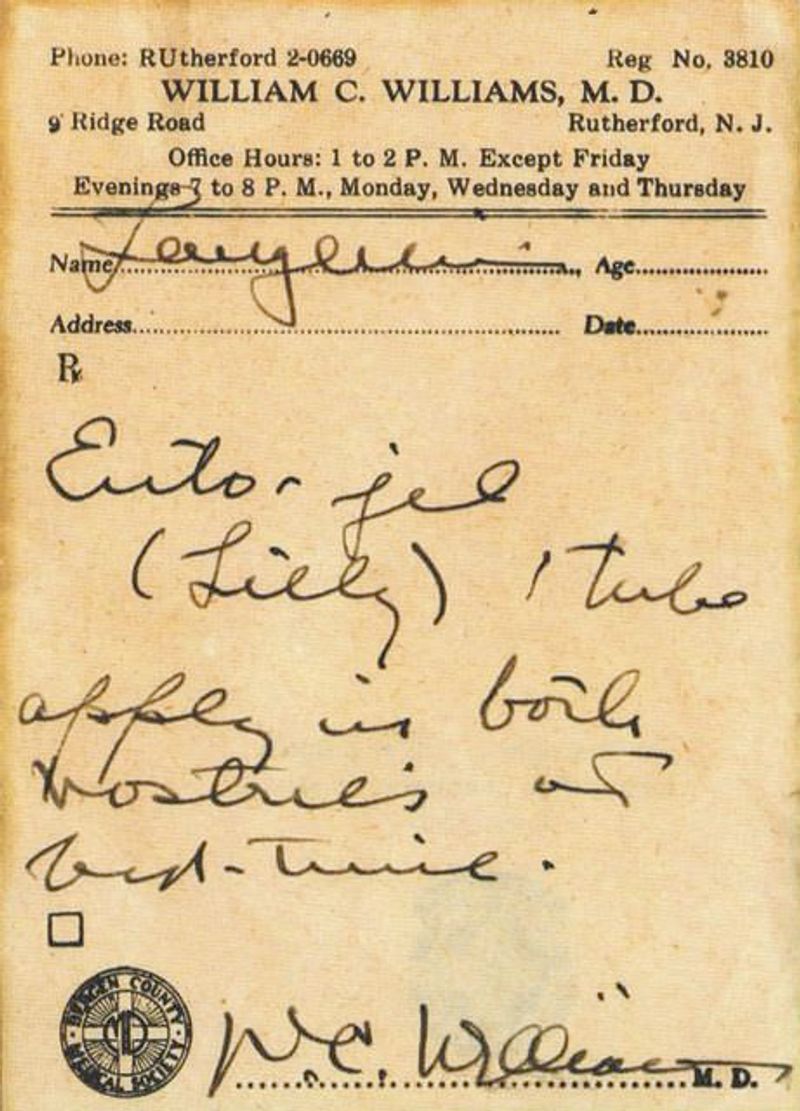 Phone: RUtherford 2-0669 Reg No. 3810
WILLIAM C. WILLIAMS, M. D.
9 Ridge Road Rutherford, N. J.
Office Hours: 1 to 2 P. M. Except Friday
Evenings 7 to 8 P. M., Monday, Wednesday and Thursday
Name Age
Address Date
℞
jel
(Lilly) 1 tube
apply in both
nostrils at
bed-time.
W. C. Williams M. D.
BERGEN COUNTY
MEDICAL SOCIETY